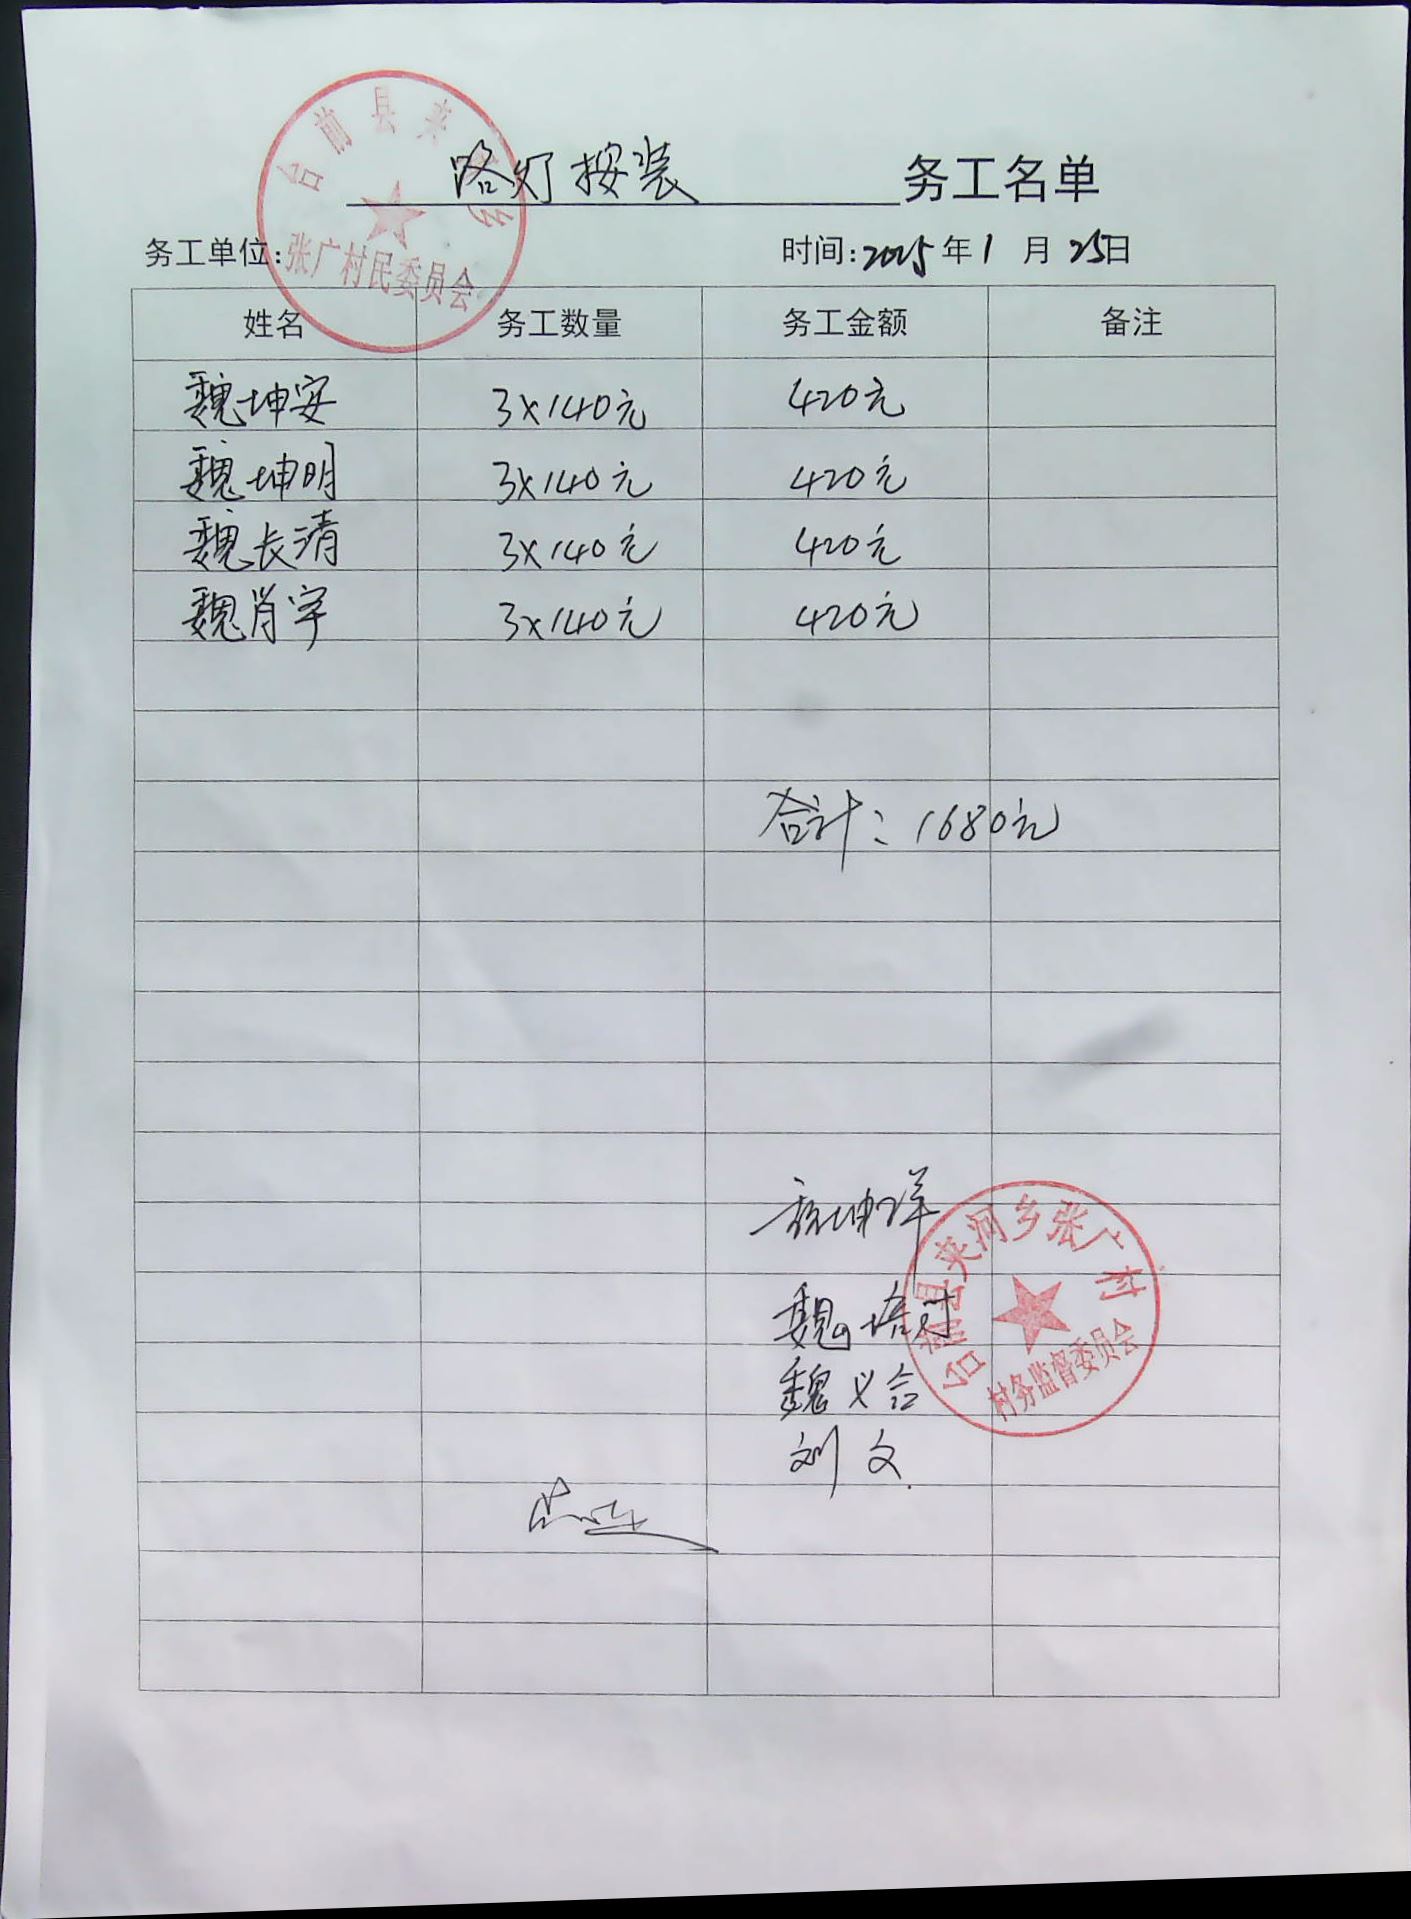 路灯按装 务工名单
务工单位: 时间:2025年1月25日
台前县夹河乡
张广村民委员会
姓名 务工数量 务工金额 备注
魏坤安 3×140元 420元
魏坤明 3×140元 420元
魏长清 3×140元 420元
魏肖宇 3×140元 420元
合计:1680元
魏坤祥
台前县夹河乡张广村
村务监督委员会
魏培
魏义合
刘文